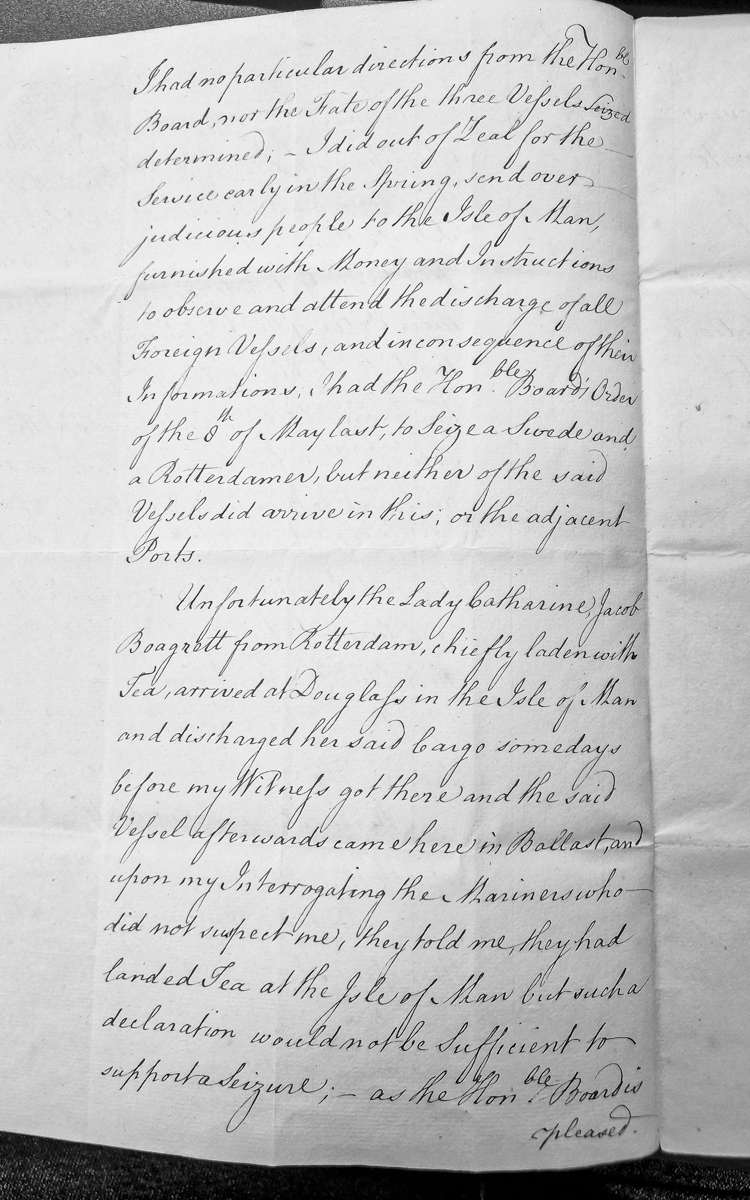 I had no particular directions from the Hon.ble
Board, nor the Fate of the three Vessels Seized
determined; – I did out of Zeal for the
Service early in the Spring, send over
judicious people to the Isle of Man,
furnished with Money and Instructions
to observe and attend the discharge of all
Foreign Vessels, and in consequence of their
Informations, I had the Hon.ble Board's Order
of the 8th of May last, to Seize a Swede and
a Rotterdamer, but neither of the said
Vessels did arrive in this, or the adjacent
Ports.
Unfortunately the Lady Catharine, Jacob
Boagrett from Rotterdam, chiefly laden with
Tea, arrived at Douglass in the Isle of Man
and discharged her said Cargo some days
before my Witness got there and the said
Vessel afterwards came here in Ballast, and
upon my Interrogating the Mariners who
did not suspect me, they told me, they had
landed Tea at the Isle of Man but such a
declaration would not be Sufficient to
support a Seizure; – as the Hon.ble Board is
pleased.